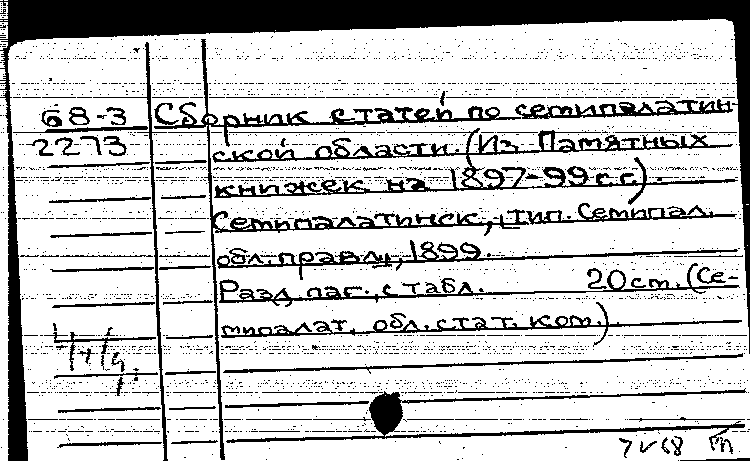 68-3 Сборник статей по семипалатин-
2273 ской области. (Из Памятных
книжек на 1897-99 г.г.).
Семипалатинск, тип. Семипал.
обл. правл., 1899.
Разд. паг., с табл. 20 см. (Се-
мипалат. обл. стат. ком.).